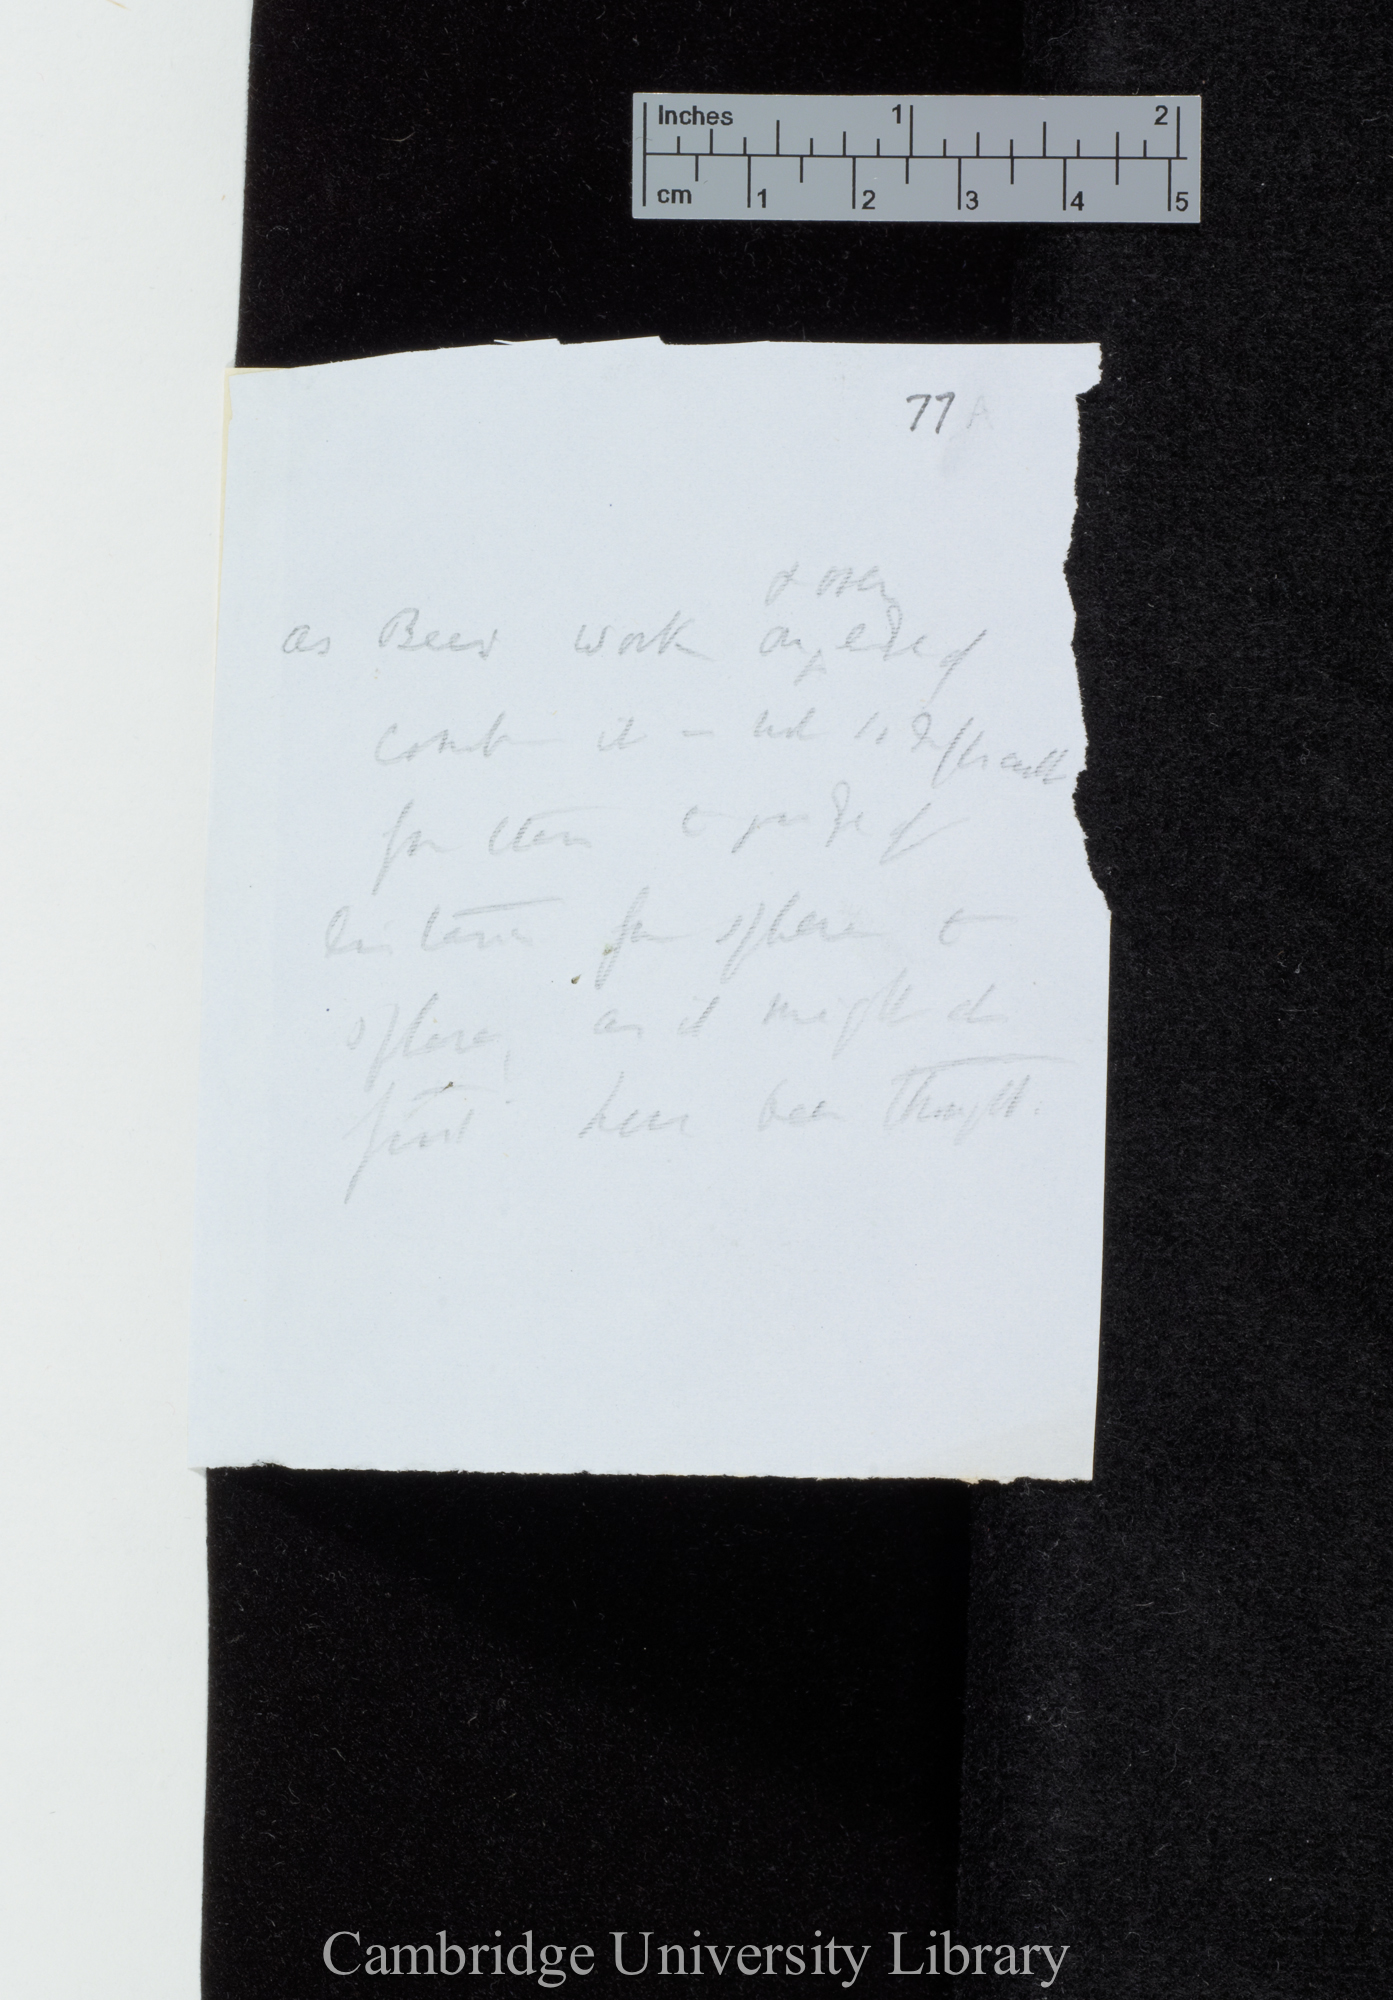 Inches 1 2
cm 1 2 3 4 5
77 A
& over
as Bees work on edge of
comb it — not so difficult
for them to judge of
distance from sphere to
sphere, as it might at
first have been thought.
Cambridge University Library